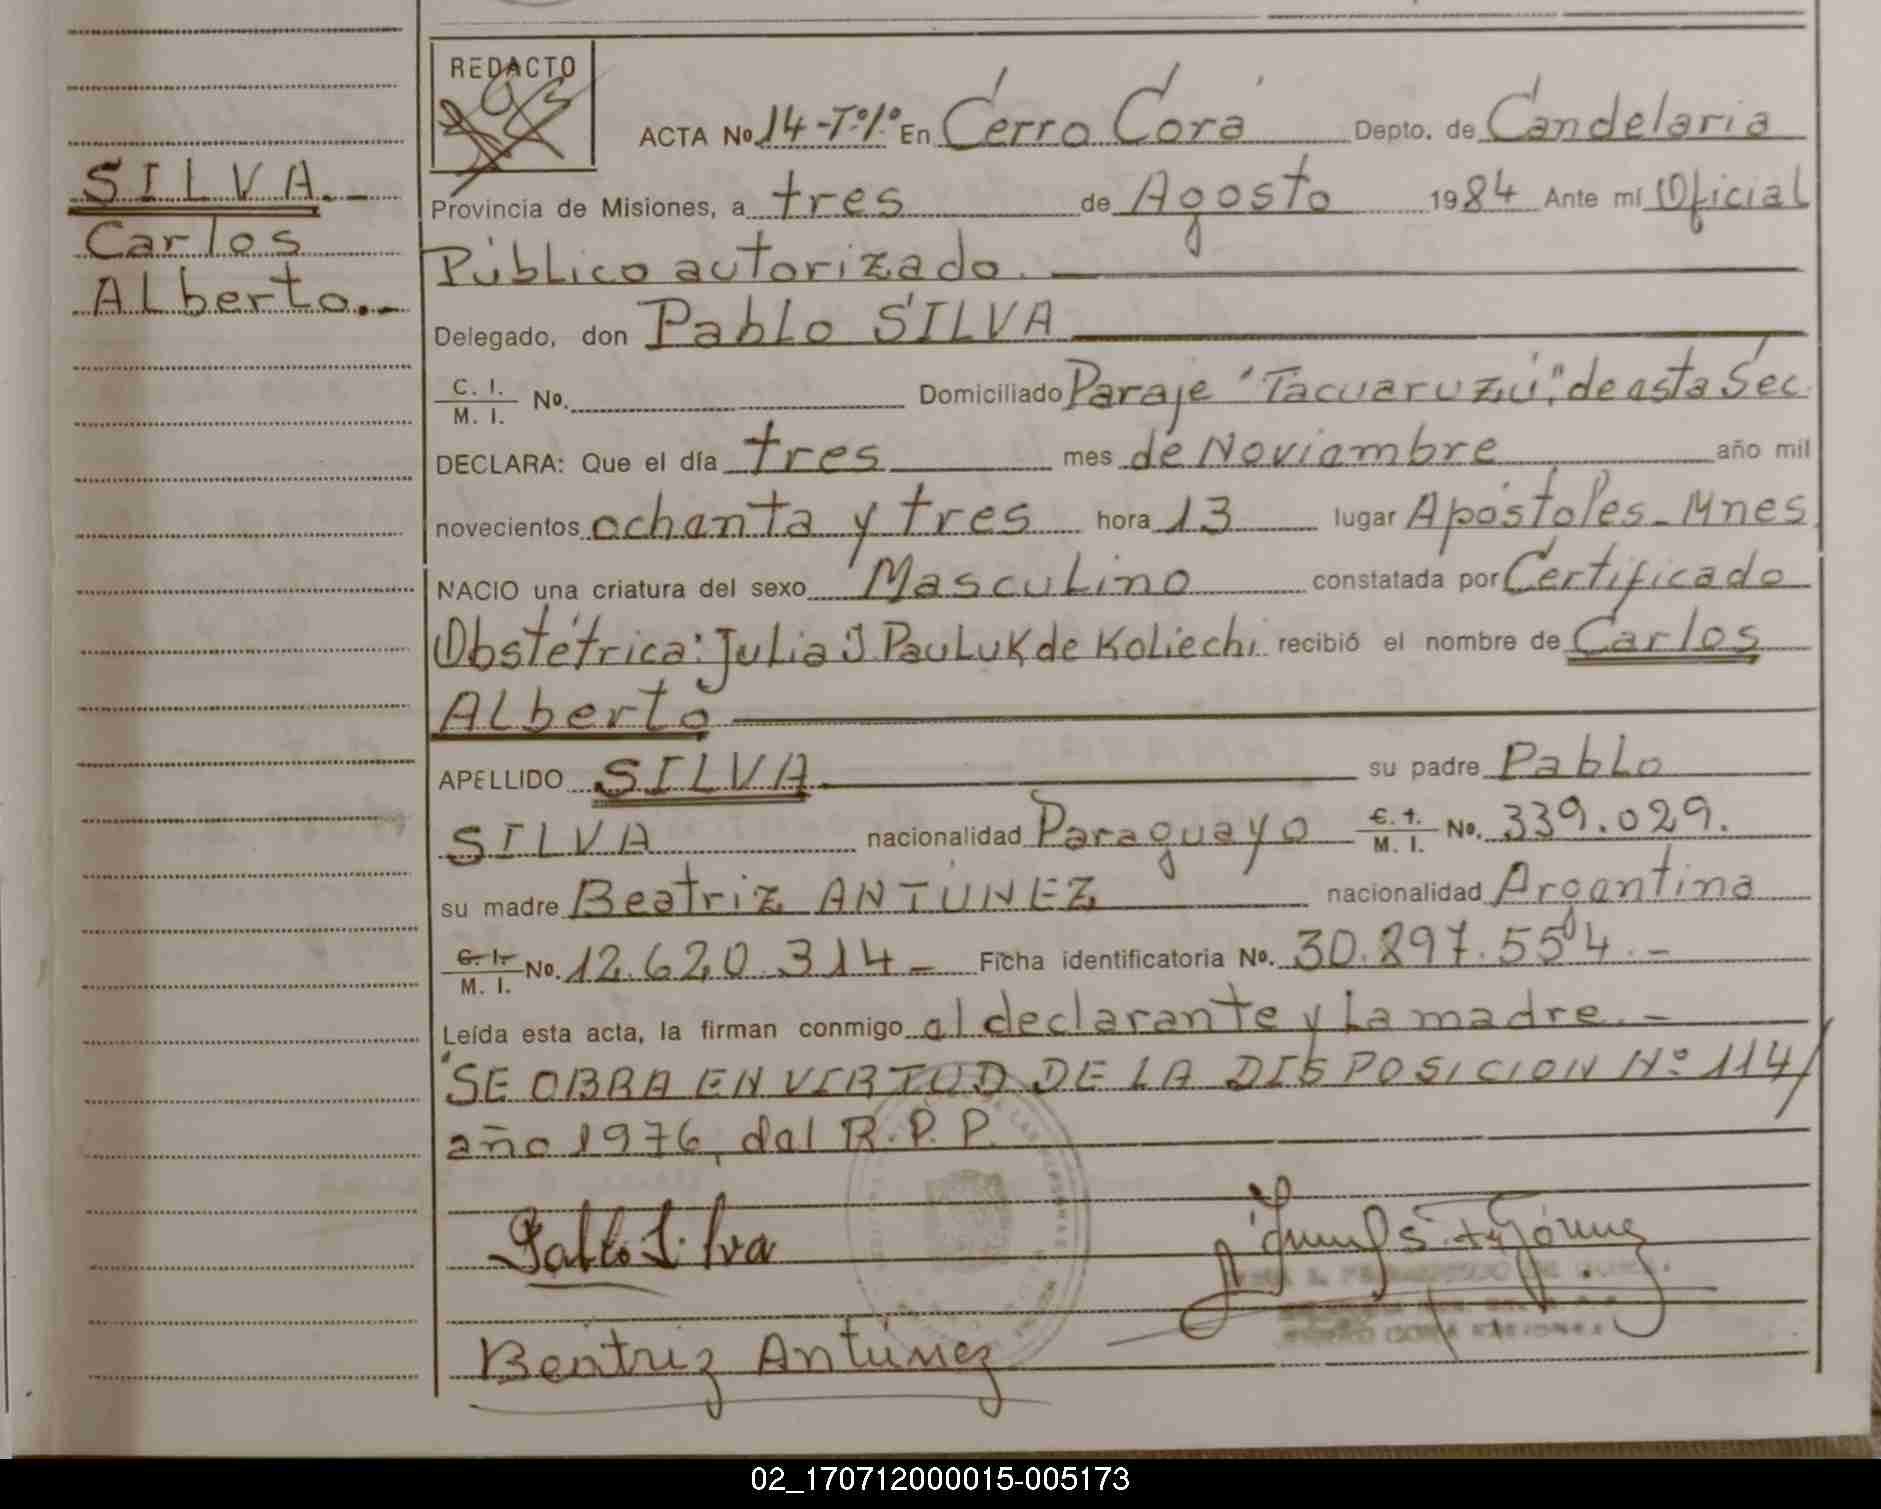 SILVA.-
Carlos
Alberto.-
REDACTO
ACTA No 14-Tº1º En Cerro Corá Depto. de Candelaria
Provincia de Misiones, a tres de Agosto 1984 Ante mí Oficial
Público autorizado.
Delegado, don Pablo SILVA
C. I. / M. I. No. Domiciliado Paraje "Tacuaruzú", de esta Sec.
DECLARA: Que el día tres mes de Noviembre año mil
novecientos ochenta y tres hora 13 lugar Apóstoles-Mnes
NACIO una criatura del sexo Masculino constatada por Certificado
Obstétrica: Julia J. Pauluk de Koliechi recibió el nombre de Carlos
Alberto
APELLIDO SILVA su padre Pablo
SILVA nacionalidad Paraguayo C. I. / M. I. No. 339.029.
su madre Beatriz ANTÚNEZ nacionalidad Argentina
C. I. / M. I. No. 12.620.314- Ficha identificatoria No. 30.897.554.-
Leída esta acta, la firman conmigo el declarante y la madre.-
"SE OBRA EN VIRTUD DE LA DISPOSICION Nº 114/
año 1976, del R.P.P.
Pablo Silva
Beatriz Antúnez
02_170712000015-005173